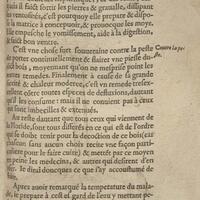 mais il faict sortir les pierres & grauelle, dissipant
ventositez, c'est pourquoy elle prepare & dispo-
la matrice à conceuoir, & prouocque les moys,
elle empesche le vomissement, aide à la digestion,
& faict bon ventre.
C'est vne chose fort souueraine contre la peste
Contre la pe-
ste.
porter continuellement & flairer vne piesse du-
bois, moyennant qu'on ne mesprise point les
autres remedes. Finalement à cause de sa grande
siccité & chaleur, moderee, c'est vn remede tresex-
cellent côtre toutes especes de defluxions, dautant
qu'il les consume: mais il ne conuient pas à ceux
sont imbecilles & extenuez.
Au reste dautant que tous ceux qui viennent de
la Floride, sont tous differés en ce qui est de l'ordre
qui se doibt tenir pour la decoction de ce bois (car
chascun sans aucun choix recite vne façon parti-
culiere pour le faire cuire) & mettét par ce moyen
peine les medecins, & autres qui desirent d'en
Ie diray doncques ce que i'ay accoustumé de
faire.
Apres auoir remarqué la temperature du mala-
de, le prepare à cest esgard de l'eau y mettant pe-